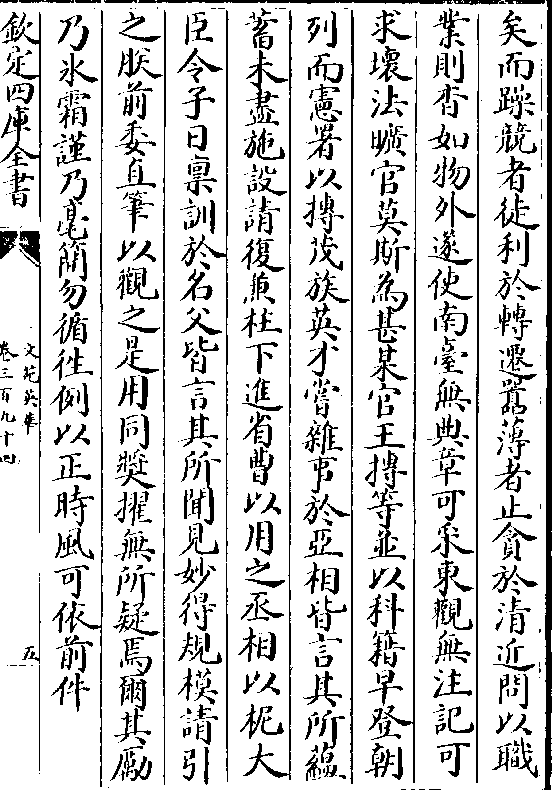 矣而躁競者徒利於轉遷嚚薄者止貪於清近問以職
業則杳如物外遂使南臺無典章可采東觀無注記可
求壞法曠官莫斯為甚某官王摶等並以科籍早登朝
列而憲署以摶茂族英才嘗雜帀於亞相皆言其所蘊
蓄未盡施設請復兼柱下進省曹以用之丞相以柅大
臣令子日稟訓於名父皆言其所聞見妙得規模請引
之朕前委直筆以觀之是用同奬擢無所疑焉爾其勵
乃氷霜謹乃毫簡勿循徃例以正時風可依前件
欽定四庫全書
文苑英華
卷三百九十四
五